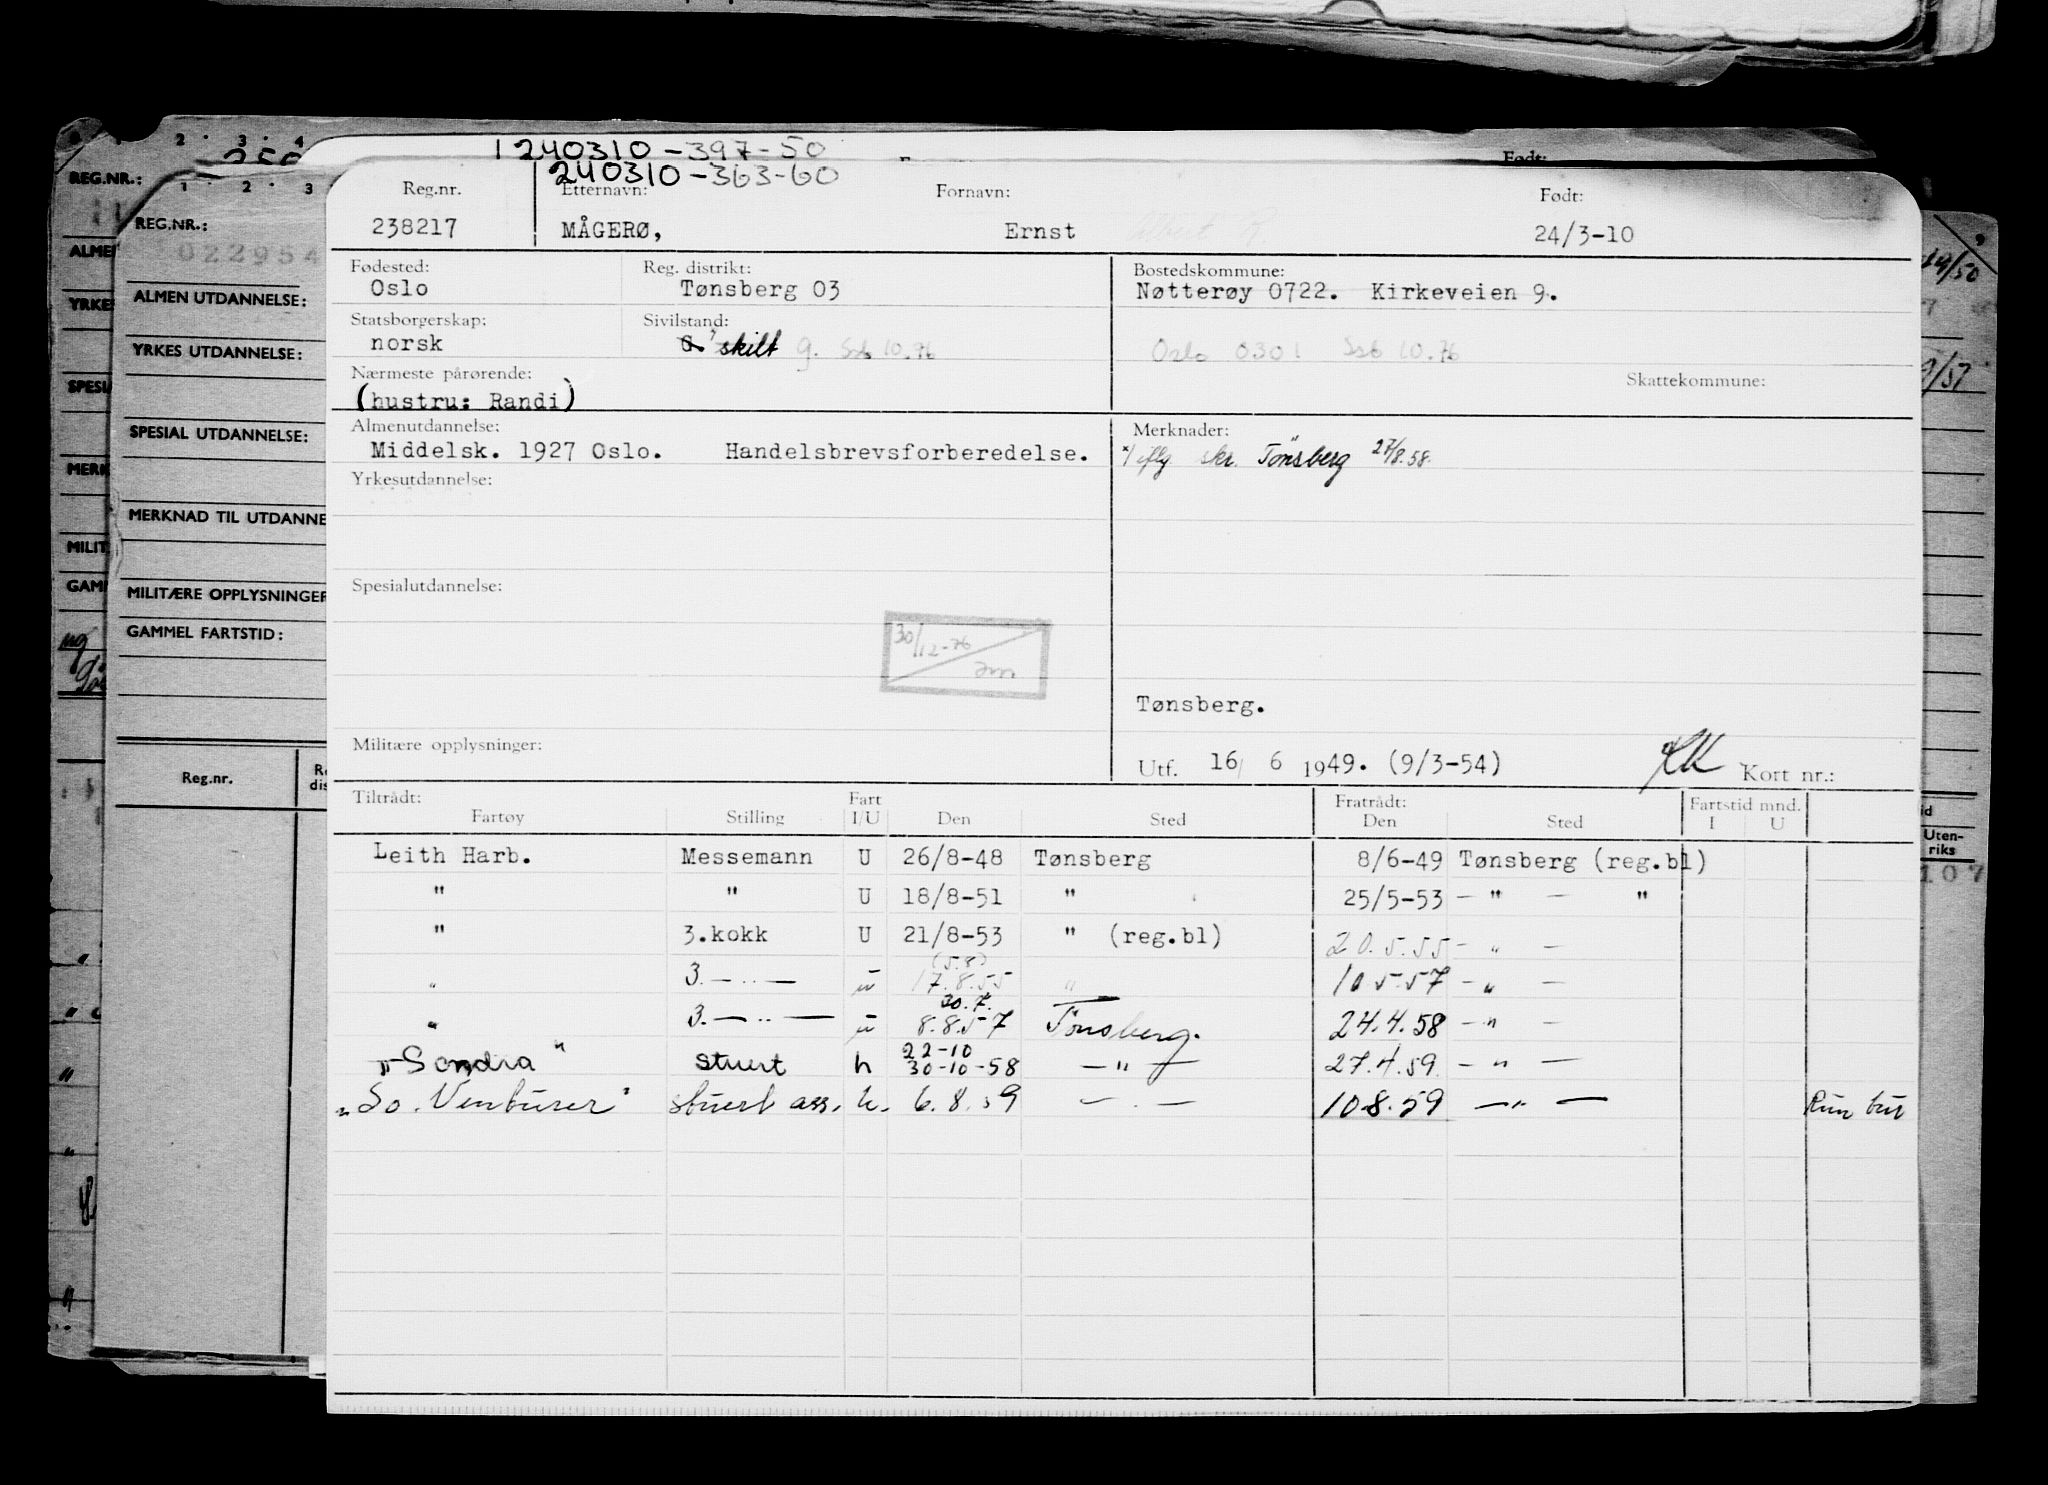 2 3 4
1240310-397-50
Født:
REG.NR.:
1 2 3
240310-363-60
Reg.nr. Etternavn: Fornavn: Født:
REG.NR.:
238217 MÅGERØ, Ernst 24/3-10
022954
ALMEN UTDANNELSE:
Fødested: Reg. distrikt: Bostedskommune:
Oslo Tønsberg 03 Nøtterøy 0722. Kirkeveien 9.
Statsborgerskap: Sivilstand:
norsk G. skilt g. Ssb 10.76 Oslo 0301 Ssb 10.76
YRKES UTDANNELSE:
Nærmeste pårørende: Skattekommune:
(hustru: Randi)
Almenutdannelse: Merknader:
SPESIAL UTDANNELSE:
Middelsk. 1927 Oslo. Handelsbrevsforberedelse. x/ iflg skr. Tönsberg 27/8.58.
Yrkesutdannelse:
MERKNAD TIL UTDANNE
Spesialutdannelse:
MILITÆRE OPPLYSNINGER
GAMMEL FARTSTID:
30/12-76
Tønsberg.
Militære opplysninger:
Utf. 16/ 6 1949. (9/3-54) Kort nr.:
Reg.nr.
Tiltrådt: Fart Fratrådt: Fartstid mnd.
Fartøy Stilling I/U Den Sted Den Sted I U
Uten-
riks
Leith Harb. Messemann U 26/8-48 Tønsberg 8/6-49 Tønsberg (reg.bl)
" " U 18/8-51 " 25/5-53 — " — "
" 3.kokk U 21/8-53 " (reg.bl) 20.5.55 — " —
(5.8)
" 3. — " — u 17.8.55 " 10.5.57 — " —
30.7.
" 3. — " — u 8.8.57 Tönsberg. 24.4.58 — " —
22-10
"Sondra" stuert h 30-10-58 — " — 27.4.59 — " —
"So. Venturer" stuert ass. u. 6.8.59 — " — 10.8.59 — " — Kun tur
107